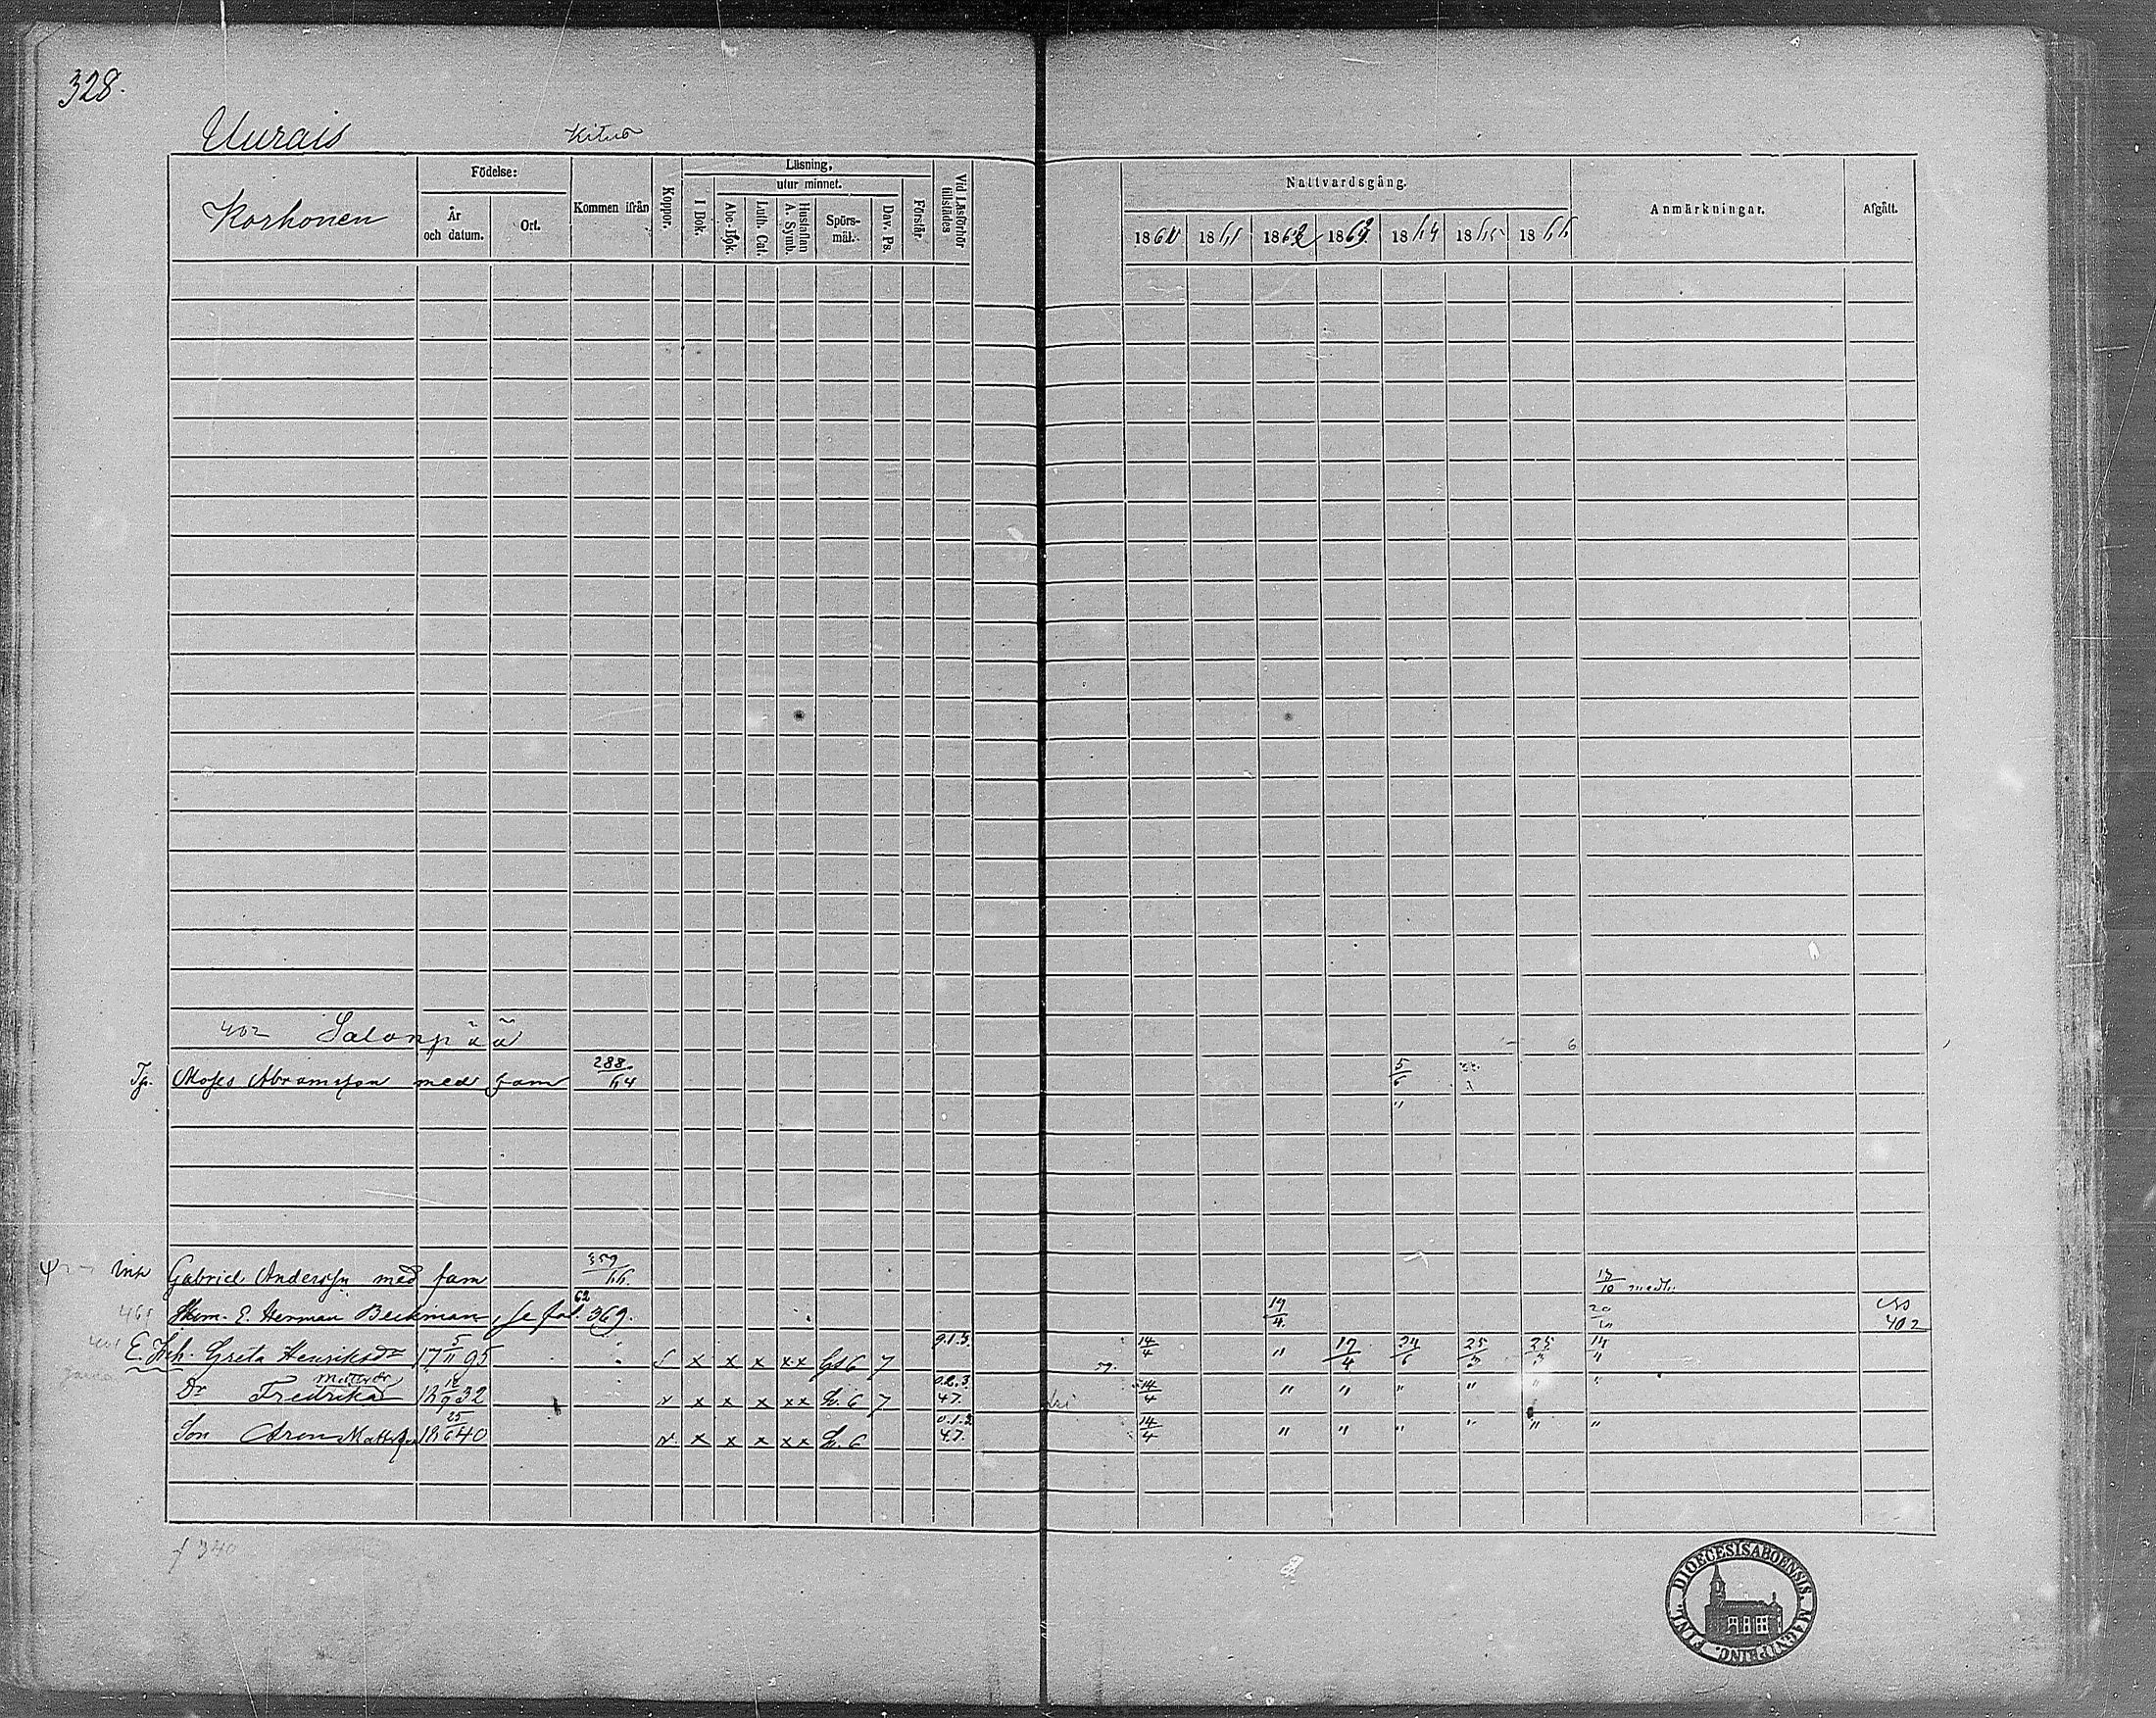 328.
Uurais Kituo
Korhonen
Födelse:
År och datum.
Ort.
Kommen ifrån
Koppor.
Läsning,
I Bok.
utur minnet.
Abc-Bok.
Luth. Cat.
Hustaflan A. Symb.
Spörsmål.
Dav. Ps.
Förstår.
Vid Läsförhör tillstädes
Nattvardsgång.
1860 1861 1862 1863 1864 1865 1866
Anmärkningar.
Afgått.
402 Salonpää
Tp. Moses Abramsson med fam 288/64 5/6
"
Inh Gabriel Andersson med fam 359/66. 13/10
461 E. Herman Beckman, se fol. 369. 62 19/4. 402
E. Inh. Greta Henriksdr 17 5/11 95 x x x x x 6 7 0.1.3. 14/4 " 17/4 24/6 25/3 25/3
Dr Fredrika Mattsdr 18 18/9 32 x x x x x 6 7 0.2.3. 47. 14/4 " " " " " "
Son Aron Mattsson 18 25/6 40 x x x x x 6 0.1.2 4.7. 14/4 " " " " " "
f 340
FINL. DIOECESIS ABOENSIS. MAGNI PRINC.